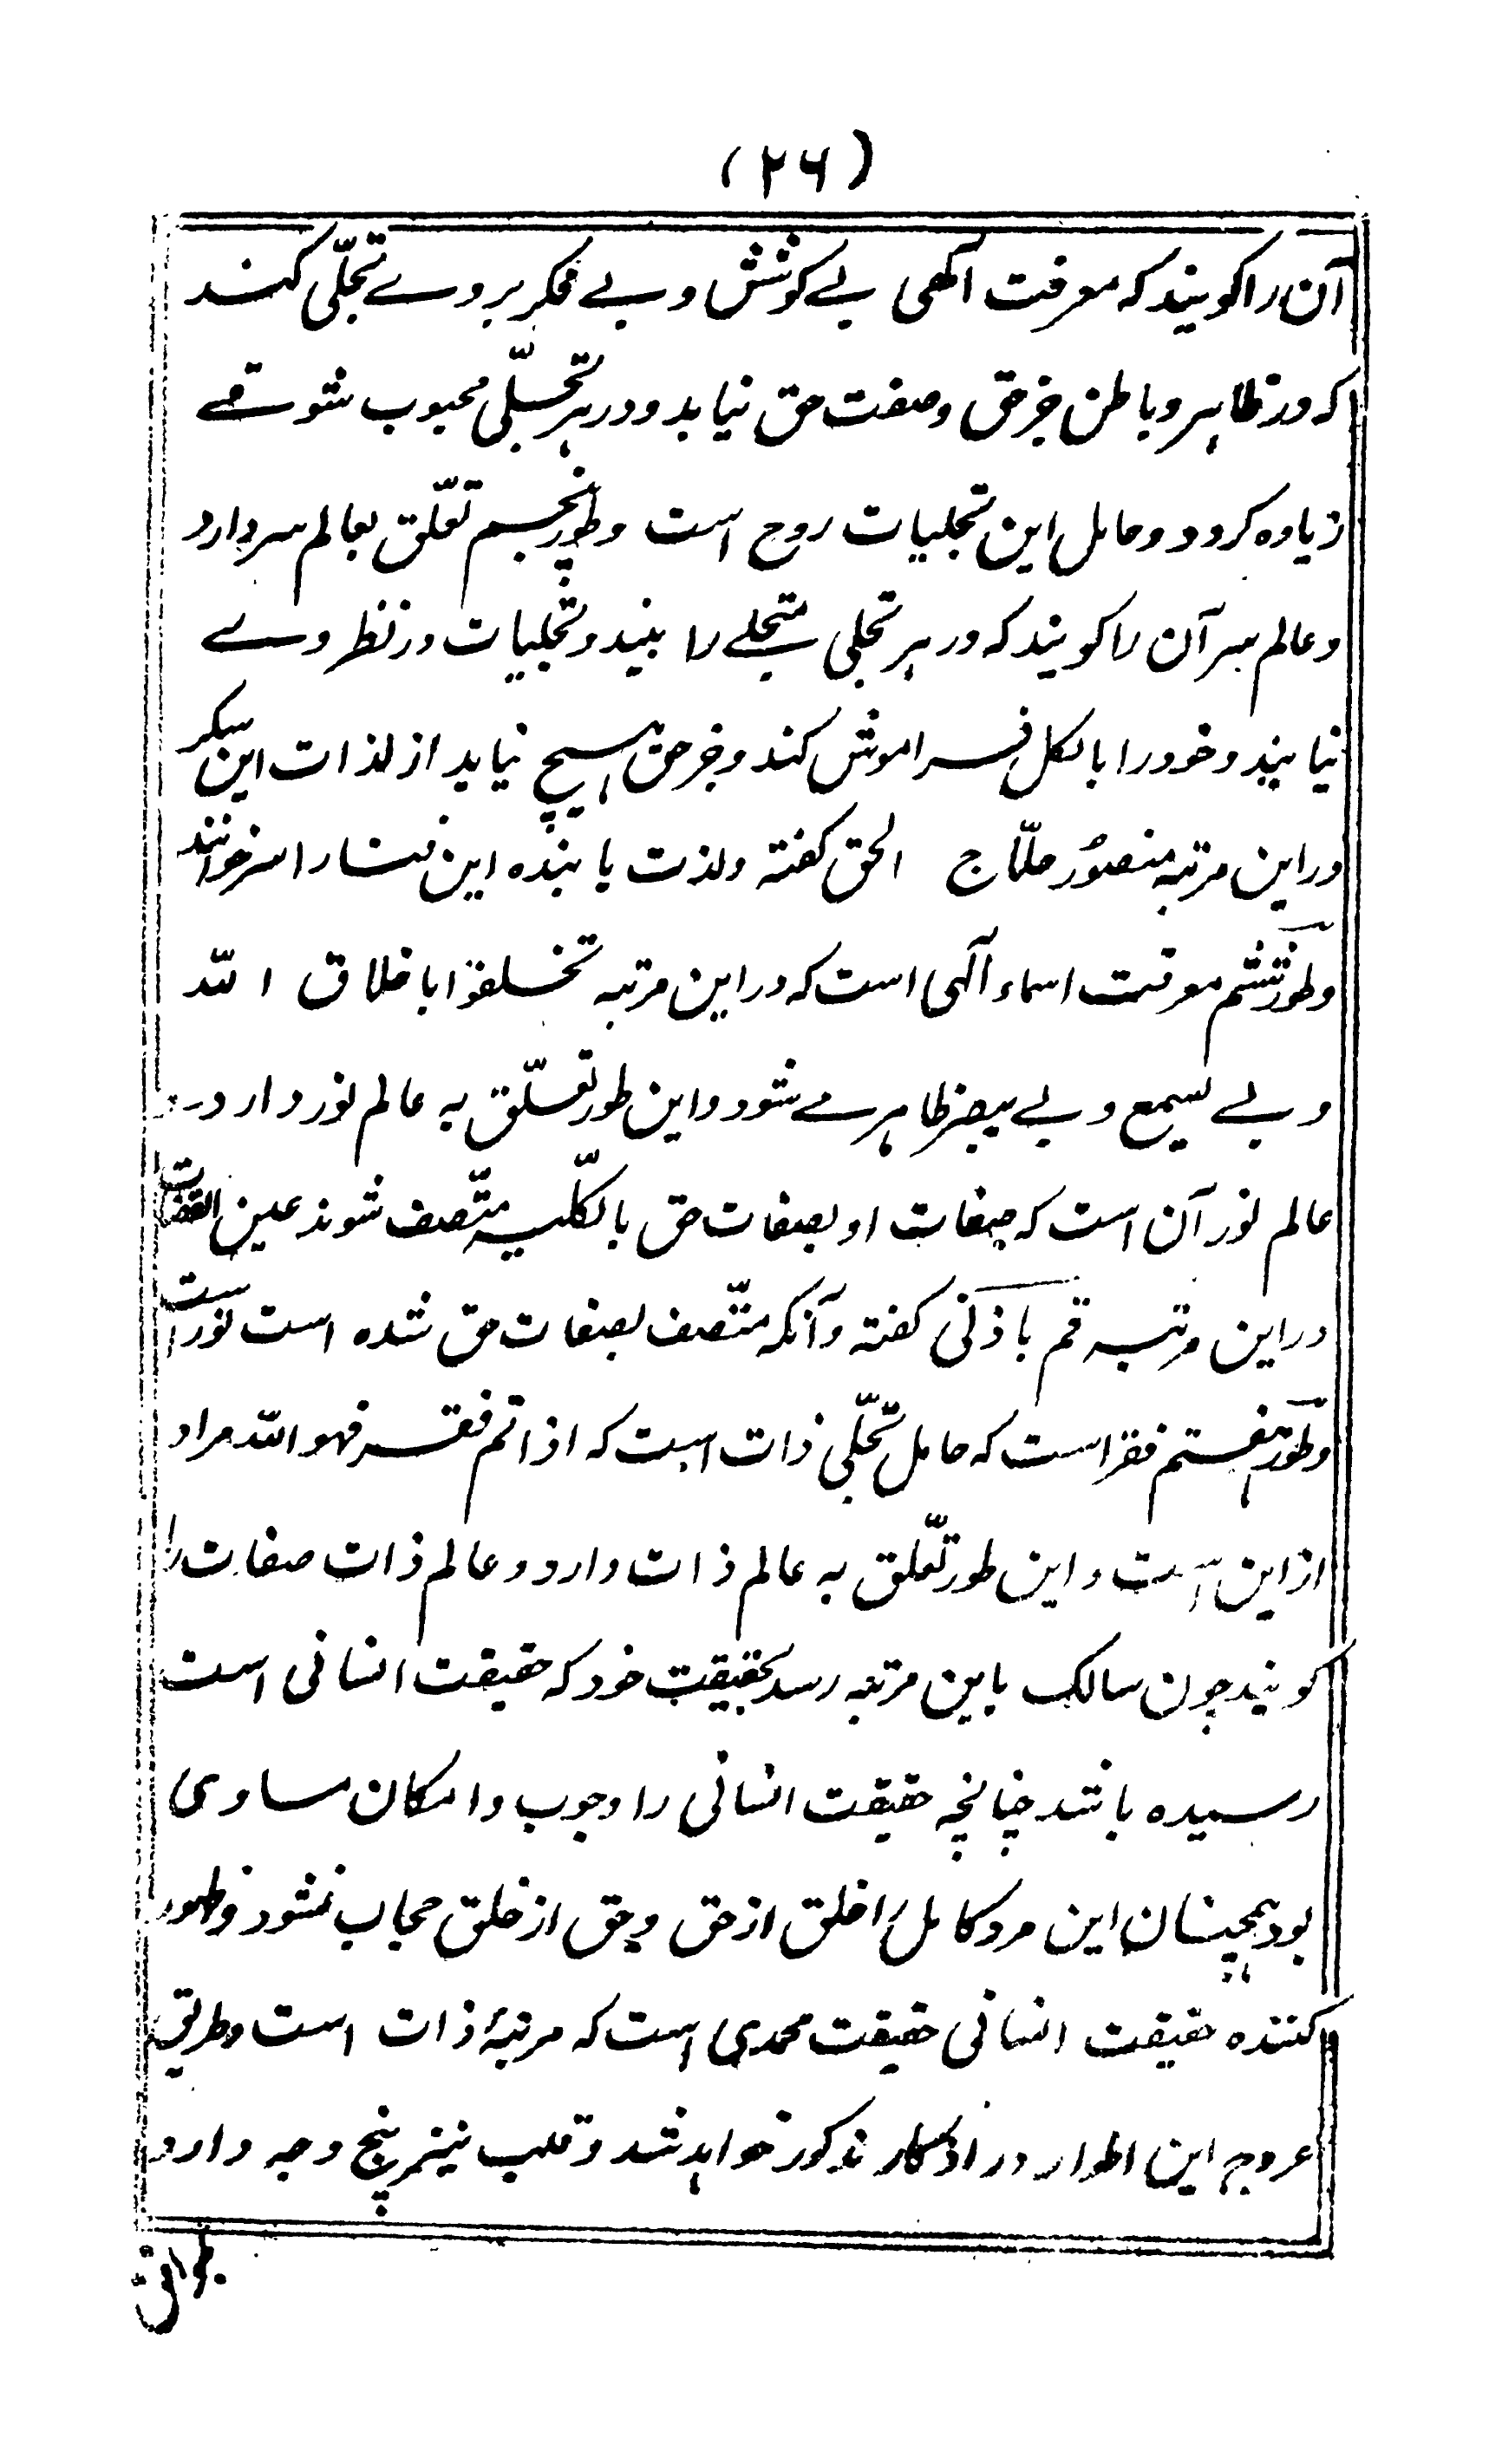 (۲۶)
آن را گویند که معرفت الٰهی بے کوشش و بے فکر بر وے تجلّی کند
که در ظاہر و باطن جز حق و صفت حق نیابد و در ہر تجلّی محبوب شوقے
زیاده گردد و حامل این تجلیات روح است و طور پنجم تعلّق بعالم سر دارد
و عالم سر آن را گویند که در ہر تجلی متجلے را بیند و تجلیات در نظر وے
نیایند و خود را بالکل فراموش کند و جز حق ہیچ نیابد از لذات این سکر
در این مرتبه منصور حلّاج الحق گفته و لذت یابنده این را سر خوانند
و طور ششم معرفت اسماء الٰهی است که در این مرتبه تخلقوا باخلاق اللّه
و بے یسمع و بے یبصر ظاہر مے شود و این طور تعلّق به عالم نور دارد و
عالم نور آن است که صفات او بصفات حق بالکّلیه متّصف شوند عین القضات
در این مرتبه قم باذنی گفته و آنکه متّصف بصفات حق شده است نور است
و طور ہفتم فقر است که حامل تجلّی ذات است که اذا تم فقر فهو اللّه مراد
از این است و این طور تعّلق به عالم ذات دارد و عالم ذات صفات را
گویند چون سالک باین مرتبه رسد بحقیقت خود که حقیقت انسانی است
رسیده باشد چنانچه حقیقت انسانی را وجوب و امکان مساوی
بود ہمچنان این مرد کامل را خلق از حق و حق از خلق حجاب نشود و ظهور
کننده حقیقت انسانی حقیقت محمدی است که مرتبهٔ ذات است و طریق
عروج این اطوار در اذکار مذکور خواہد شد و قلب نیز پنج وجه دارد